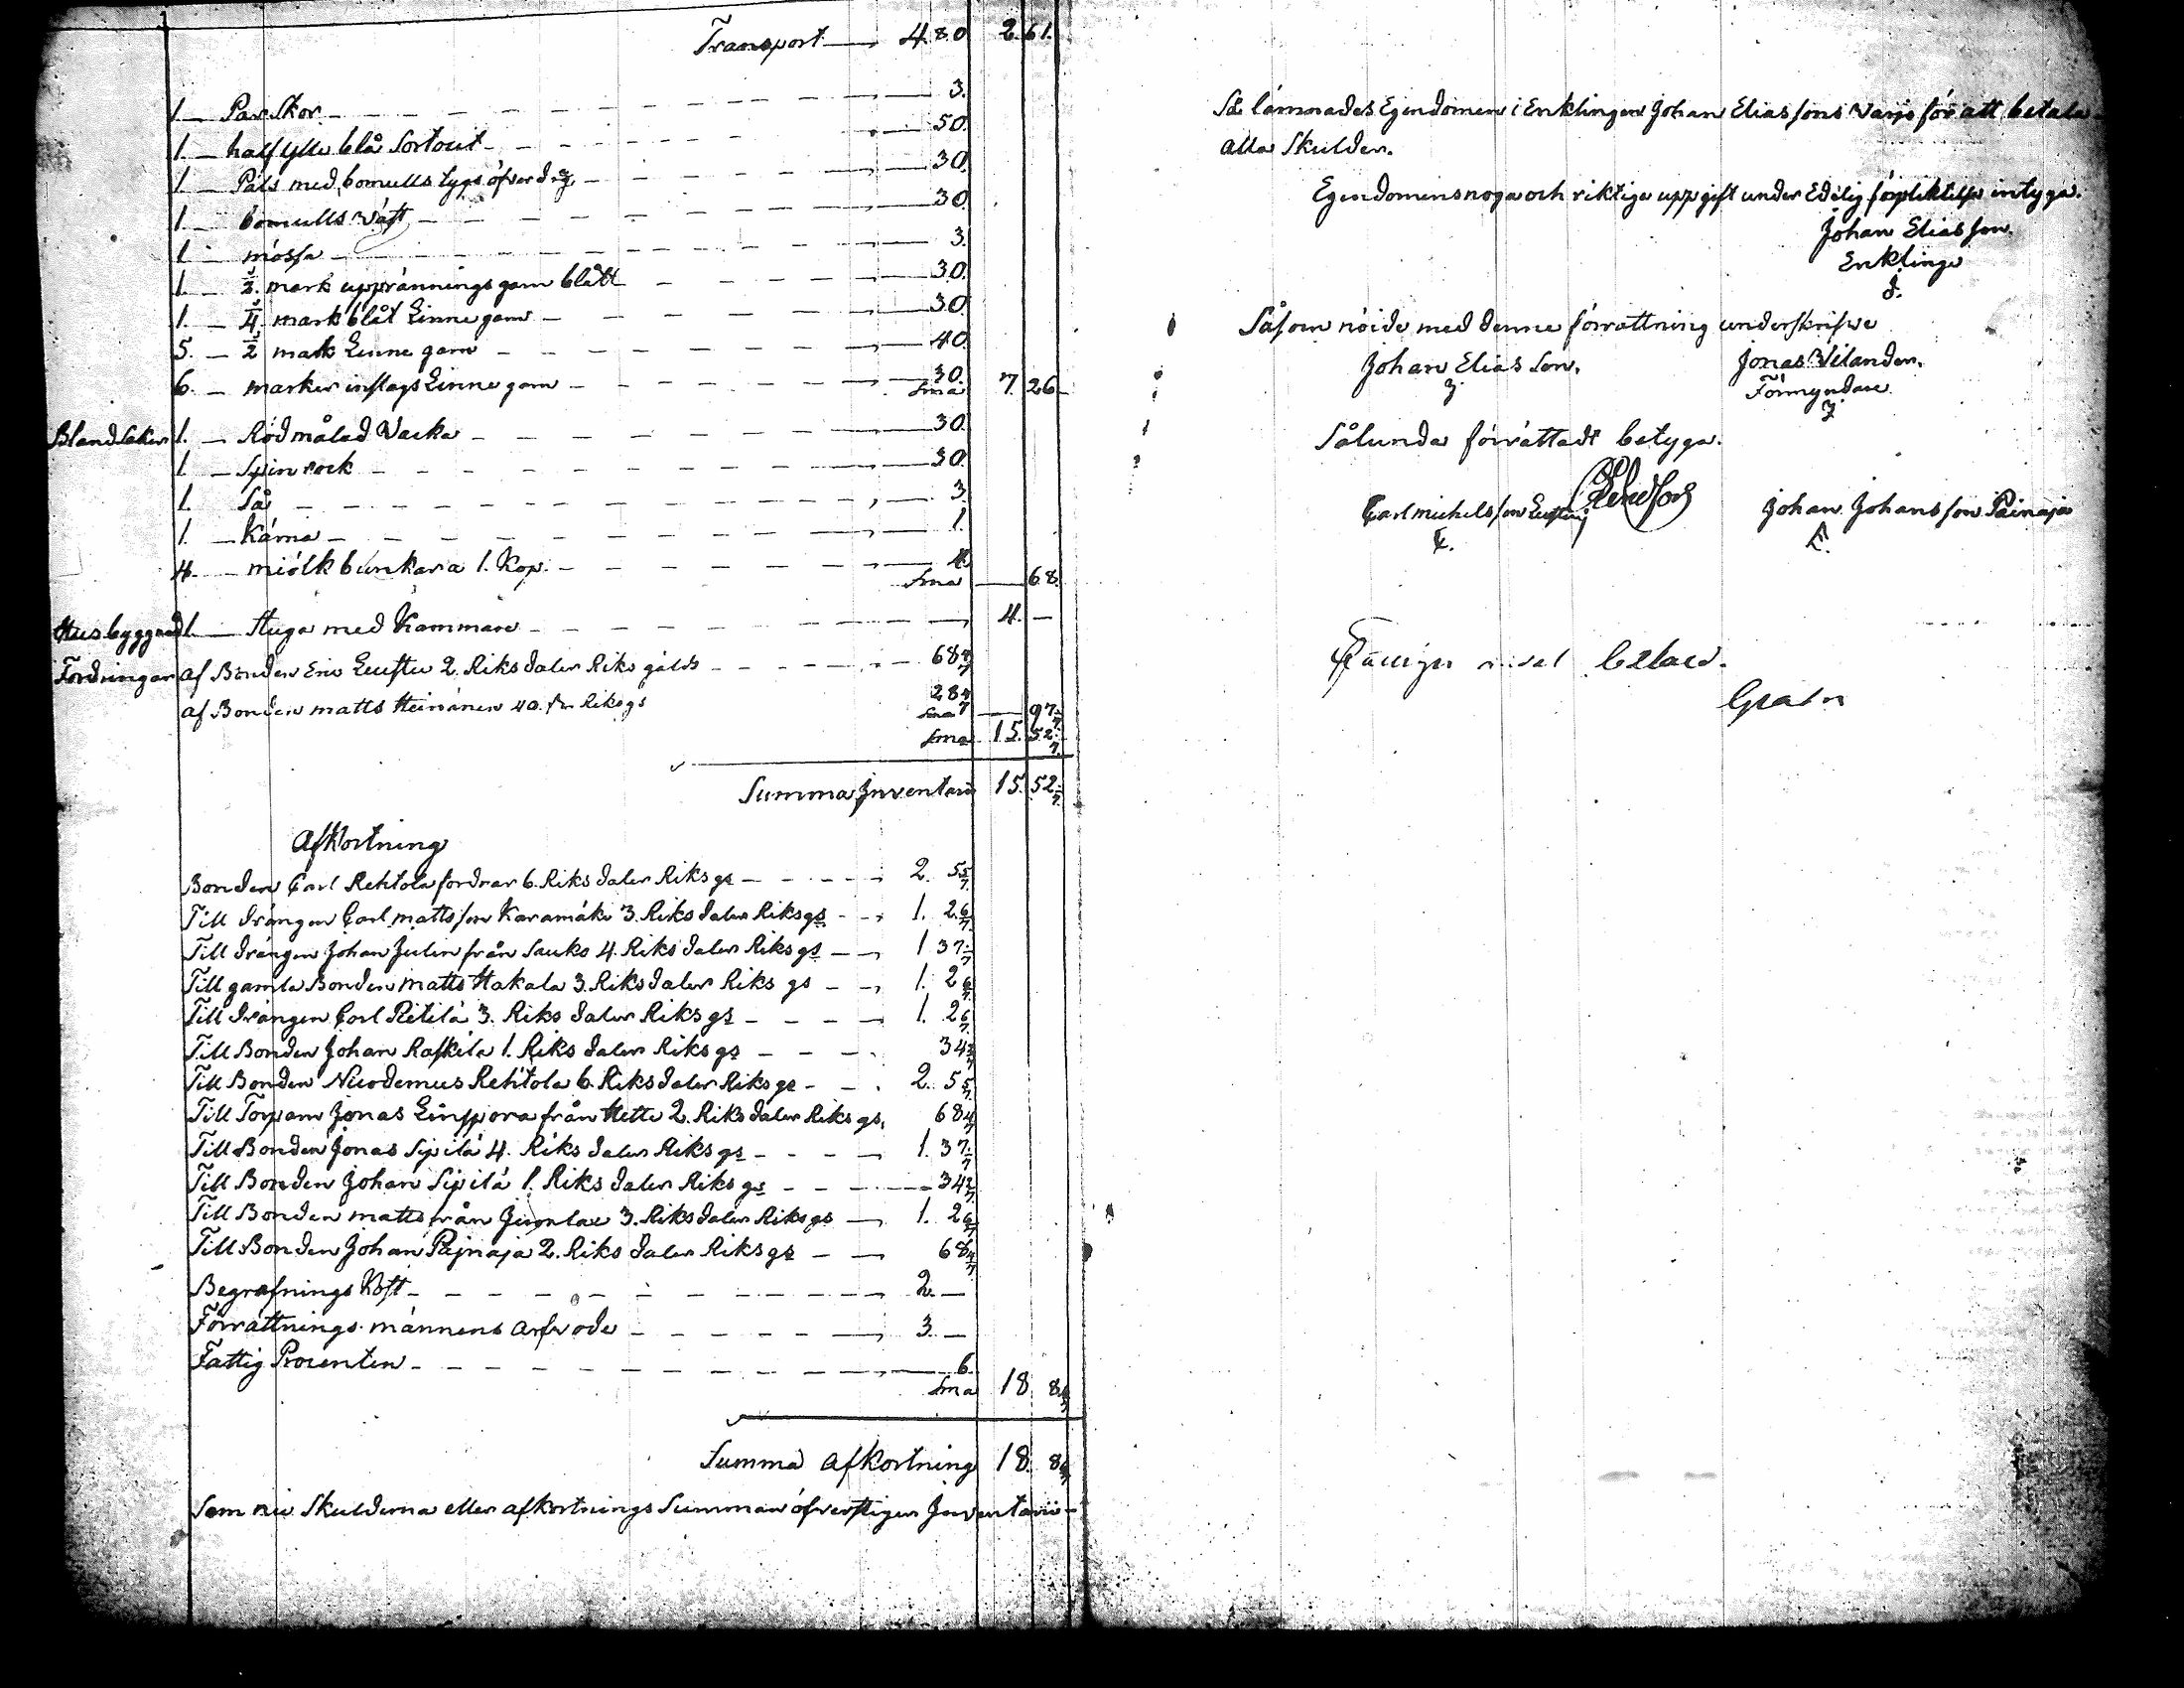 Transport 4. 80 2. 61.
1. Par Skor 3.
1. half ylle blå Sortout 50.
1. Päls med bomulls tygs öfverdrag 30.
1. bomulls Väst 30.
1. mössa 3.
1. 1/2 mark upprännings garn blått 30.
1. 3/4 mark blåt Linne garn 30.
5. 1/2 mark Linne garn 40.
6. marker inslags Linne garn 30. Sma 7. 26.
Blandsaker 1. Rödmålad Vacka 30.
1. Spinrock 30.
1. Så 3.
1. Kärna 1.
4. miölk bunkar a 1. Kop. 4. Sma 68.
Husbyggnad 1. Stuga med Kammare 4. —
Fordringar af Bonden Eric 2. Riksdaler Riks gälds 68 4/7
af Bonden matts Heinänen 40. Riksgs 28 4/7 Sma 97 1/7
Sma 15. 52 1/7
Summa Inventarii 15. 52 1/7
Afkortning
Bonden Carl Rehtola fordrar 6. Riksdaler Riksgs 2. 5 5/7
Till drängen Carl mattsson Karamäki 3. Riksdaler Riksgs 1. 2 6/7
Till drängen Johan Julin från Sauko 4. Riksdaler Riksgs 1 37 1/7
Till gamla Bonden matts Hakala 3. Riksdaler Riks gs 1. 2 6/7
Till drängen Carl Pitilä 3. Riksdaler Riksgs 1. 2 6/7
Till Bonden Johan Raskila 1. Riksdaler Riksgs 34 2/7
Till Bonden Nicodemus Rehtola 6. Riksdaler Riksgs 2. 5 5/7
Till Torparn Jonas från 2. Riksdaler Riksgs. 68 4/7
Till Bonden Jonas Sipilä 4. Riksdaler Riksgs 1. 37 1/7
Till Bonden Johan Sipilä 1. Riksdaler Riksgs 34 2/7
Till Bonden matts från 3. Riksdaler Riksgs 1. 2 6/7
Till Bonden Johan Pajnaja 2. Riksdaler Riksgs 68 4/7
Begrafnings Kost 2. —
Förrättnings männens arfvode 3. —
Fattig Procenten 6.
Sma 18. 8 4/7
Summa afkortning 18. 8 4/7
Som nu Skulderna eller afkortnings Summan öfverstiger Inventarii
Så lämnades Egendomen i Enklingen Johan Eliassons Varjo för att betala
alla Skulder.
Egendomens noga och riktiga uppgift under Edelig förpliktelse intyga.
Johan Eliasson
Enkling
Såsom nöide med denne förrättning underskrifve
Johan Eliasson. Jonas Vilander.
Förmyndare
Sålunda förrättadt betyga.
Carl michelsson Johan Johansson Painaja